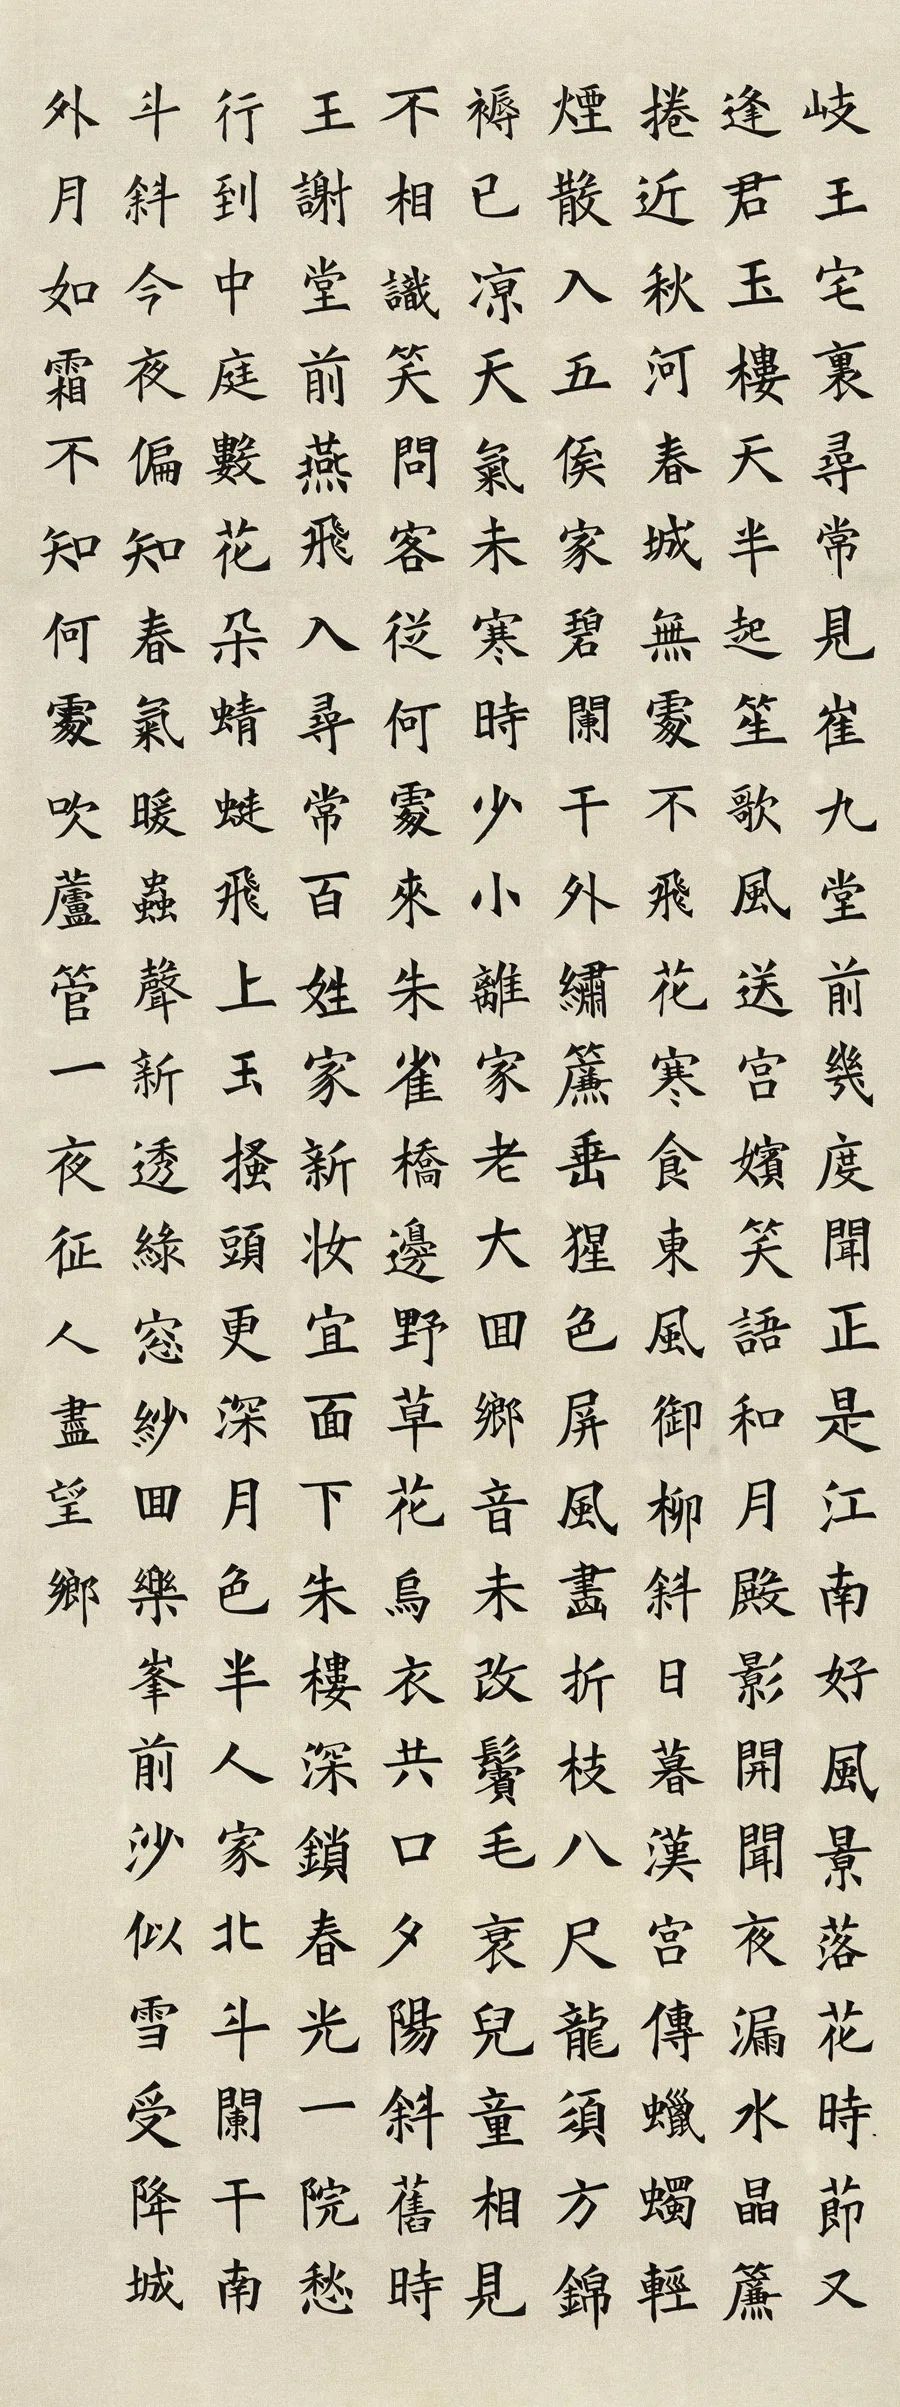 岐王宅裏尋常見崔九堂前幾度聞正是江南好風景落花時節又
逢君玉樓天半起笙歌風送宮嬪笑語和月殿影開聞夜漏水晶簾
捲近秋河春城無處不飛花寒食東風御柳斜日暮漢宮傳蠟蠋輕
煙散入五侯家碧闌干外繡簾垂猩色屏風畫折枝八尺龍須方錦
褥已凉天氣未寒時少小離家老大囬鄉音未改鬢毛衰兒童相見
不相識笑問客從何處來朱雀橋邊野草花烏衣共口夕陽斜舊時
王謝堂前燕飛入尋常百姓家新妆宜面下朱樓深鎖春光一院愁
行到中庭數花朵蜻蜓飛上玉搔頭更深月色半人家北斗闌干南
斗斜今夜偏知春氣暖蟲聲新透綠窓紗囬樂峯前沙似雪受降城
外月如霜不知何處吹蘆管一夜征人盡望鄉